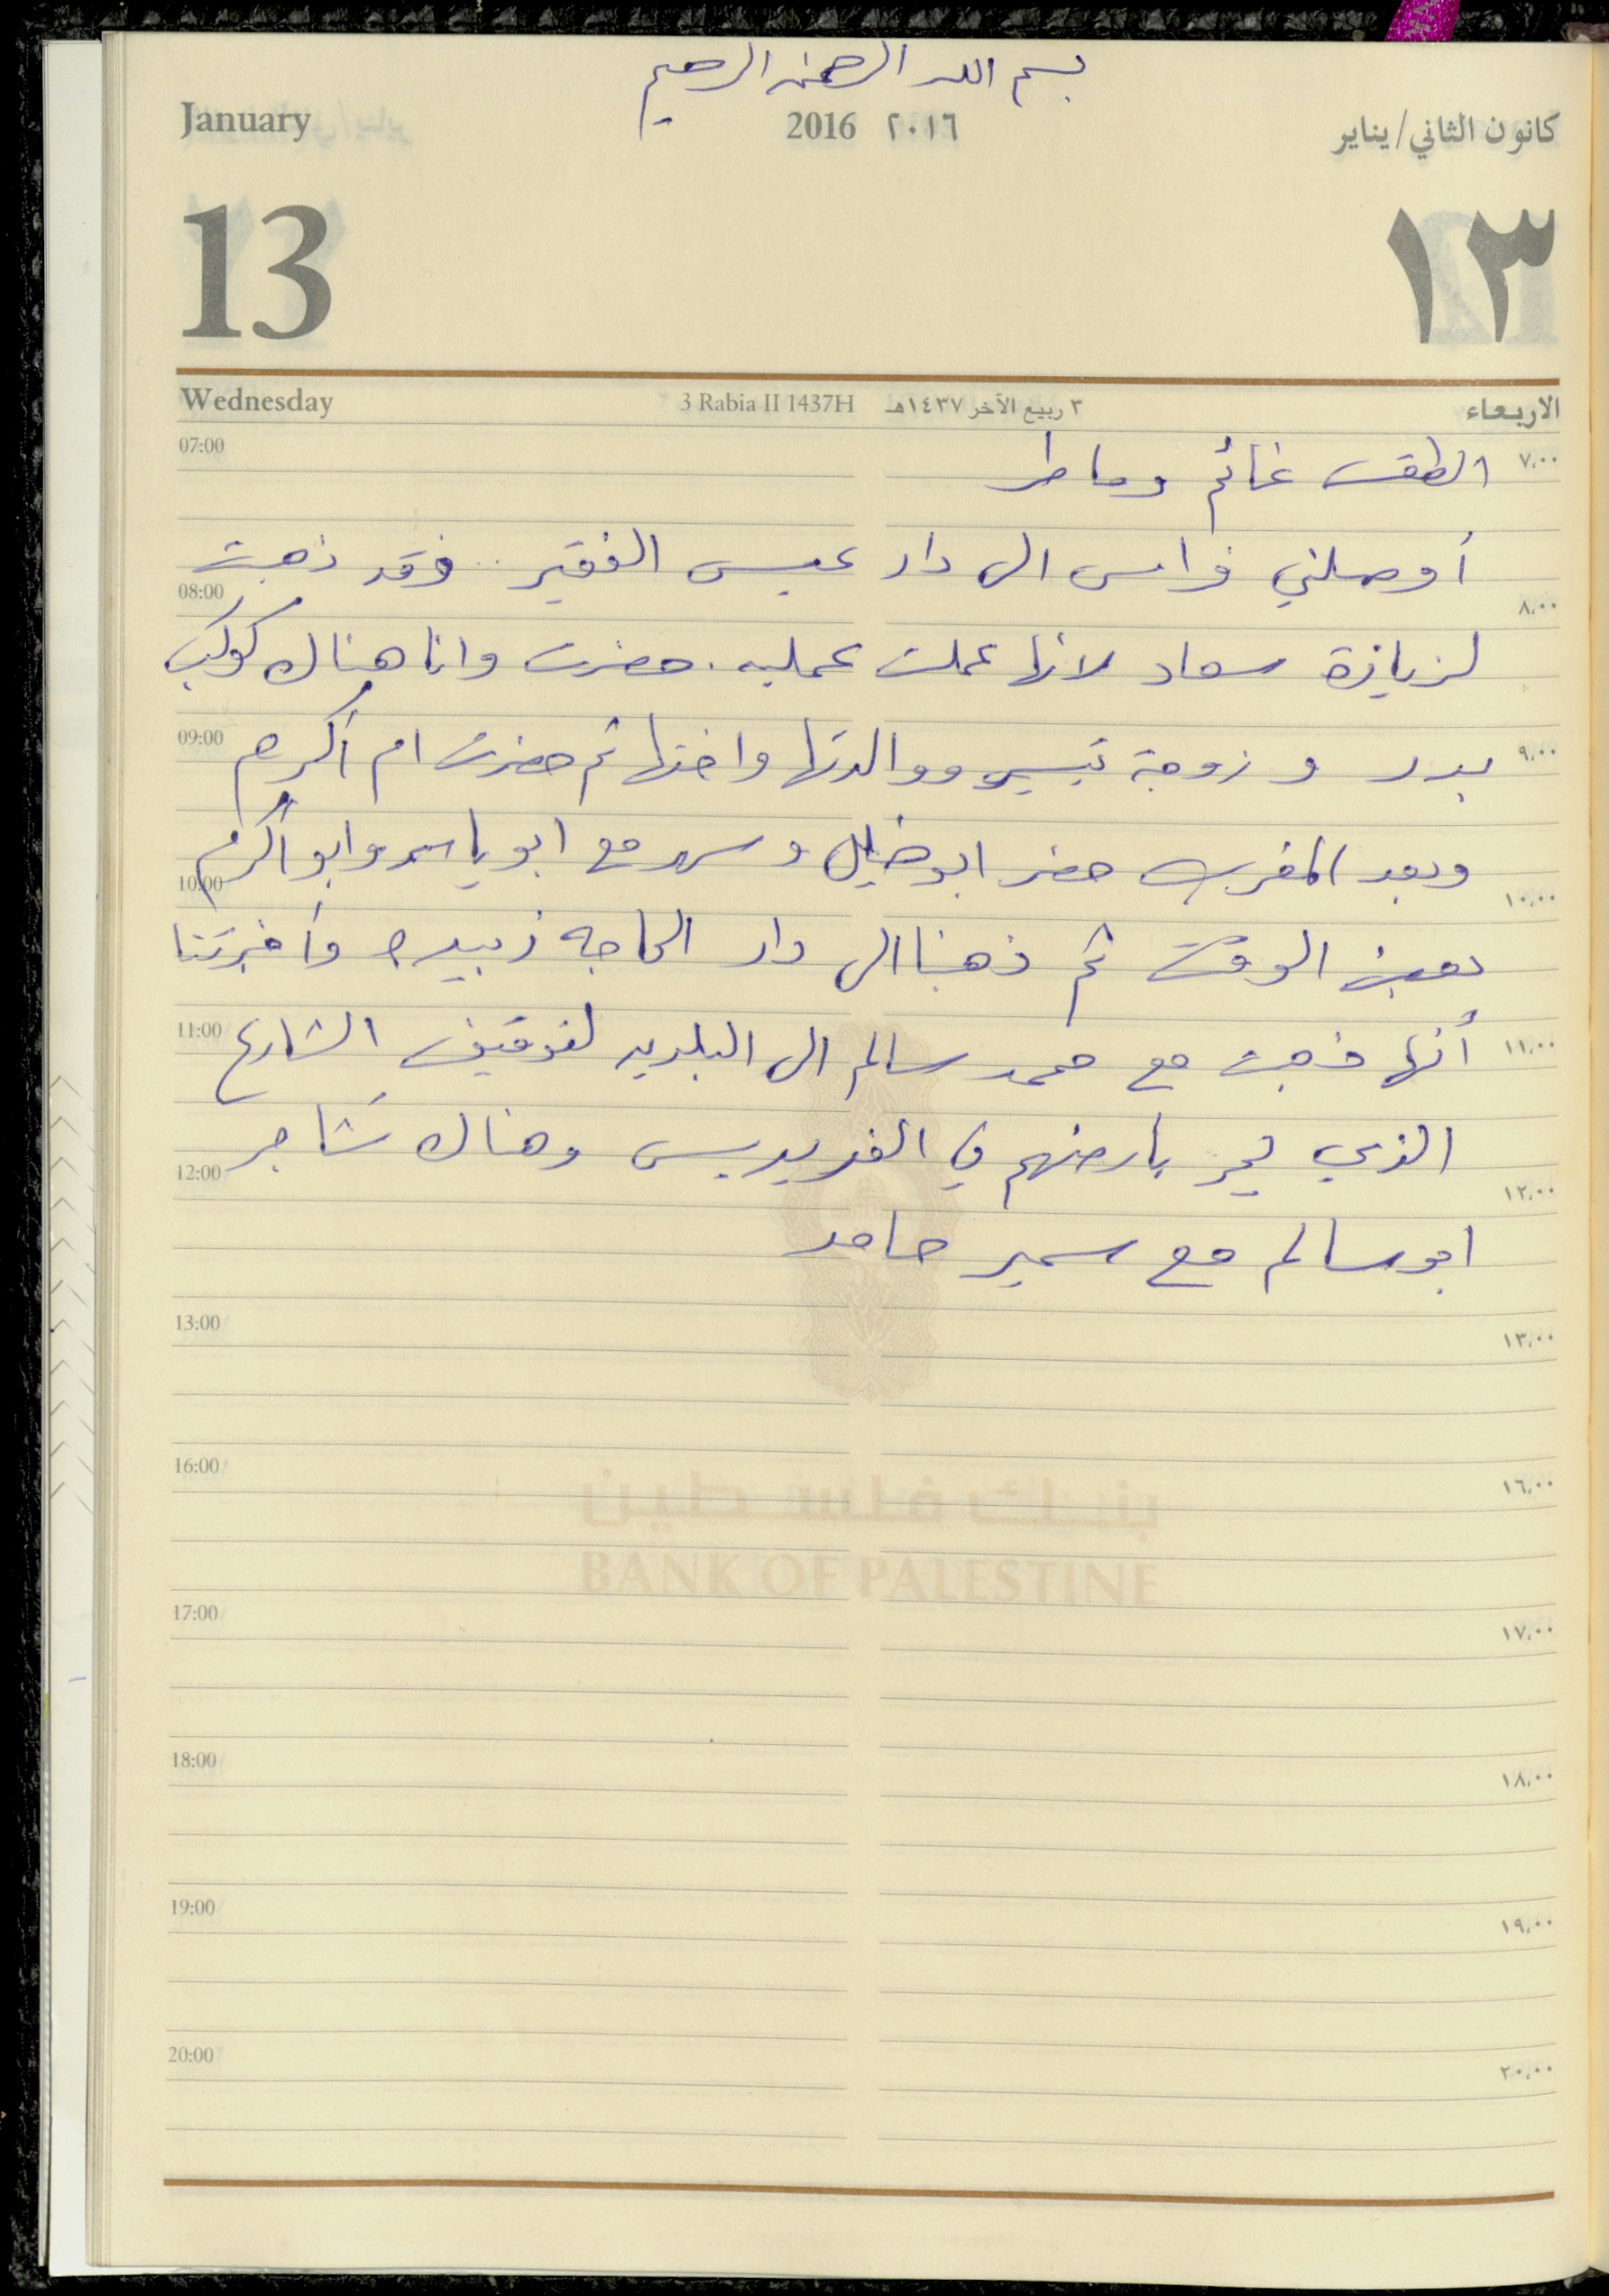 بسم الله الرحمن الرحيم
January 2016 ٢٠١٦ كانون الثاني/يناير
13 ١٣
Wednesday 3 Rabia II 1437H ٣ ربيع الآخر ١٤٣٧هـ الاربعاء
07:00 الطقس غائم وماطر ٧,٠٠
أوصلني فراس الى دار عيسى الفقير .. فقد ذهبت
08:00 ٨,٠٠
لزيارة سعاد لانها عملت عمليه . حضرت وانا هناك كوكب
09:00 بدر و زوجة تيسير ووالدتها واختها ثم حضرت ام أكرم ٩,٠٠
وبعد المغرب حضر ابو خليل وسهر مع ابو ياسر وابو أكرم
10:00 ١٠,٠٠
بعض الوقت ثم ذهبنا الى دار الحاجه زبيده وأخبرتنا
11:00 أنها ذهبت مع محمد سالم الى البلديه لتوقيف الشارع ١١,٠٠
الذي يمر بارضهم في الفريديس وهناك تشاجر
12:00 ١٢,٠٠
ابو سالم مع سمير حامد
13:00 ١٣,٠٠
16:00 ١٦,٠٠
بنك فلسطين
BANK OF PALESTINE
17:00 ١٧,٠٠
18:00 ١٨,٠٠
19:00 ١٩,٠٠
20:00 ٢٠,٠٠